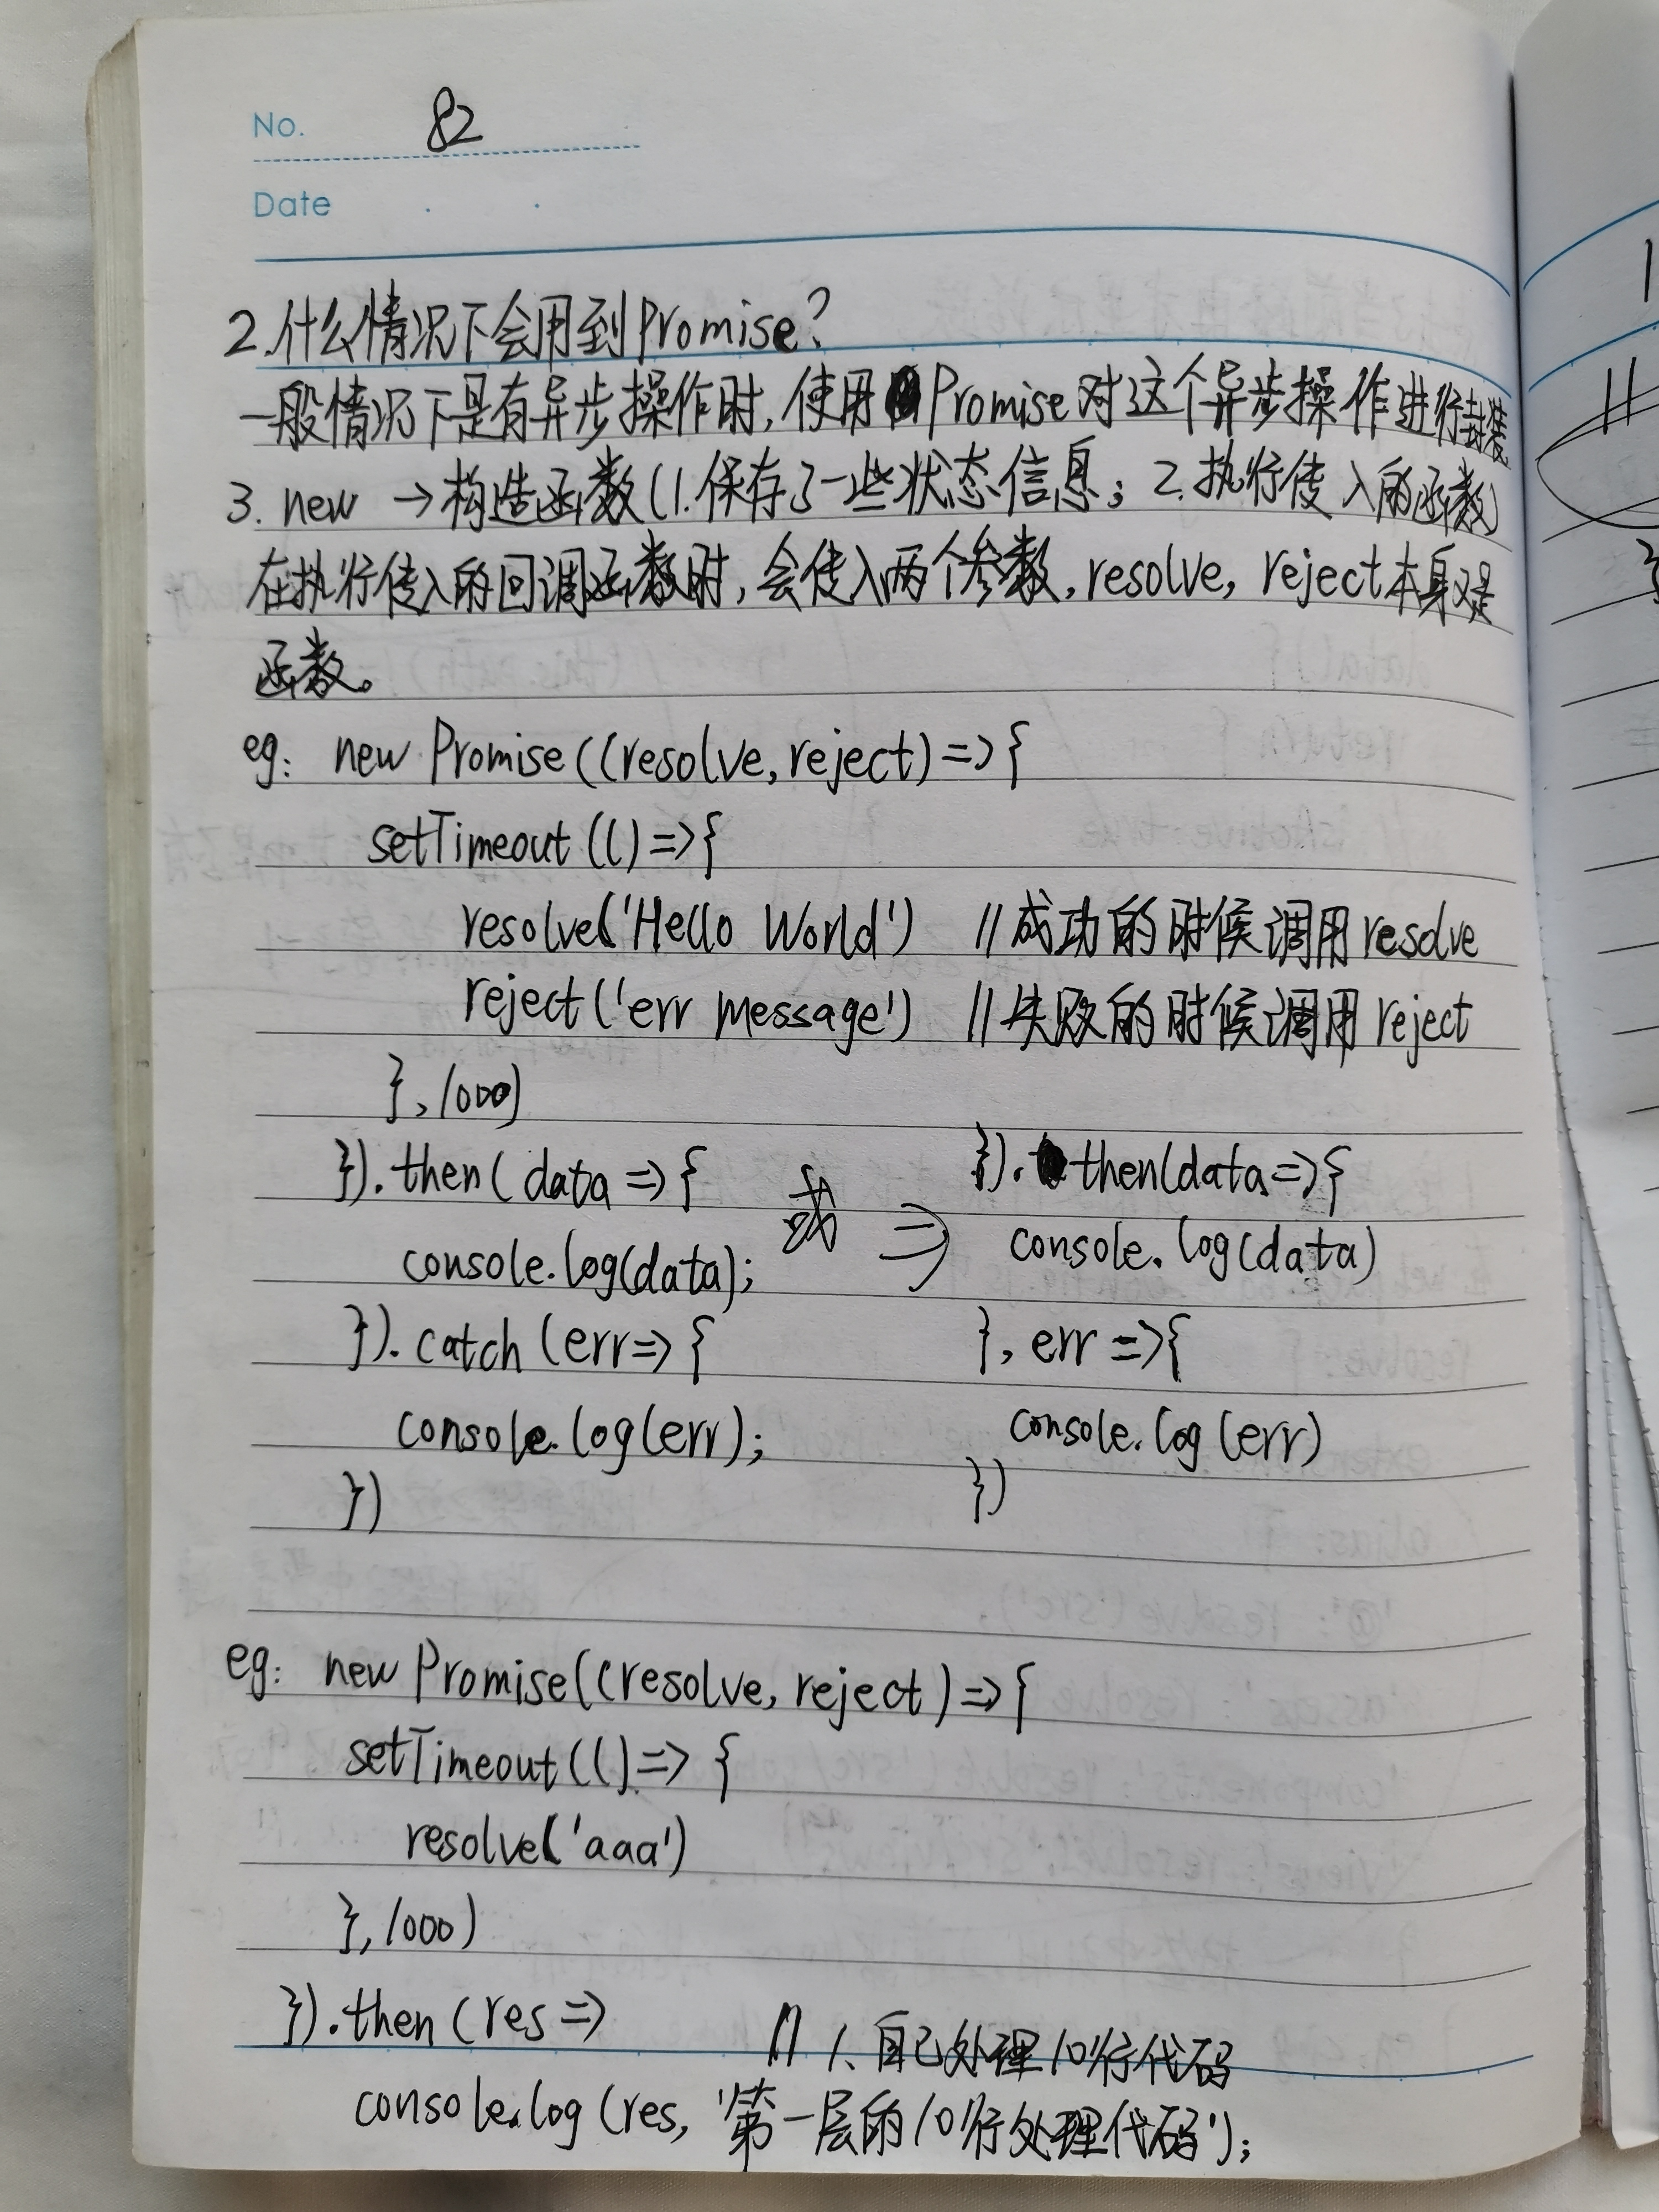 No. 82
Date
2.什么情况下会用到Promise?
一般情况下是有异步操作时,使用Promise对这个异步操作进行封装
3. new →构造函数(1.保存了一些状态信息; 2.执行传入的函数)
在执行传入的回调函数时,会传入两个参数,resolve, reject本身又是
函数。
eg: new Promise((resolve,reject)=>{
setTimeout(()=>{
resolve('Hello World') //成功的时候调用resolve
reject('err message') //失败的时候调用reject
},1000)
}).then(data=>{
console.log(data);
}).catch(err=>{
console.log(err);
})
或 =>
}).then(data=>{
console.log(data)
},err=>{
console.log(err)
})
eg: new Promise((resolve,reject)=>{
setTimeout(()=>{
resolve('aaa')
},1000)
}).then(res=> // 1.自己处理10行代码
console.log(res,'第一层的10行处理代码');